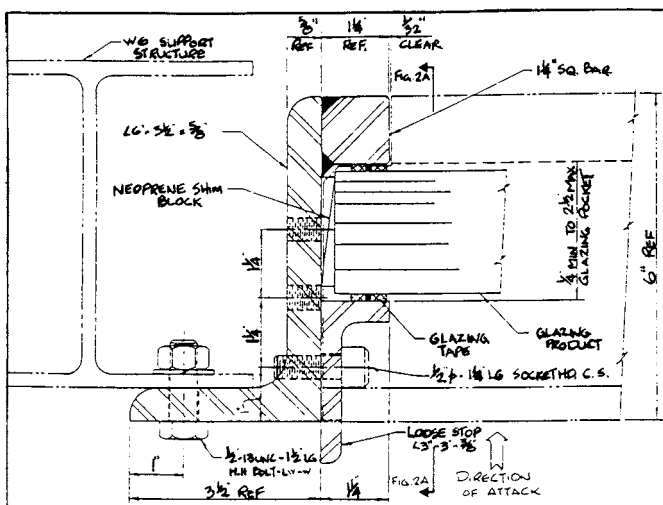 W6 SUPPORT
STRUCTURE
5/8"
REF
1 1/4"
REF.
1/32"
CLEAR
FIG. 2A
1 1/4" SQ. BAR
L6"- 3 1/2" = 5/8"
NEOPRENE SHIM
BLOCK
1 1/4
1 1/4
1/4 MIN TO 2 1/2 MAX
GLAZING POCKET
6" REF
GLAZING
TAPE
GLAZING
PRODUCT
1/2 ϕ - 1 1/4 LG SOCKET HD. C.S.
LOOSE STOP
L3"- 3"- 3/8"
1/2-13UNC-1 1/2 LG
H.H BOLT-L/W-W
1"
3 1/2 REF
1 1/4
FIG. 2A
DIRECTION
OF ATTACK